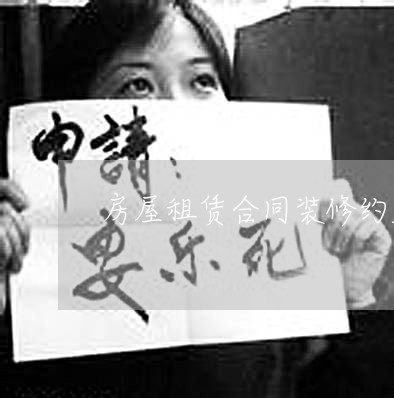 申請：
房屋租赁合同装修约
安乐死